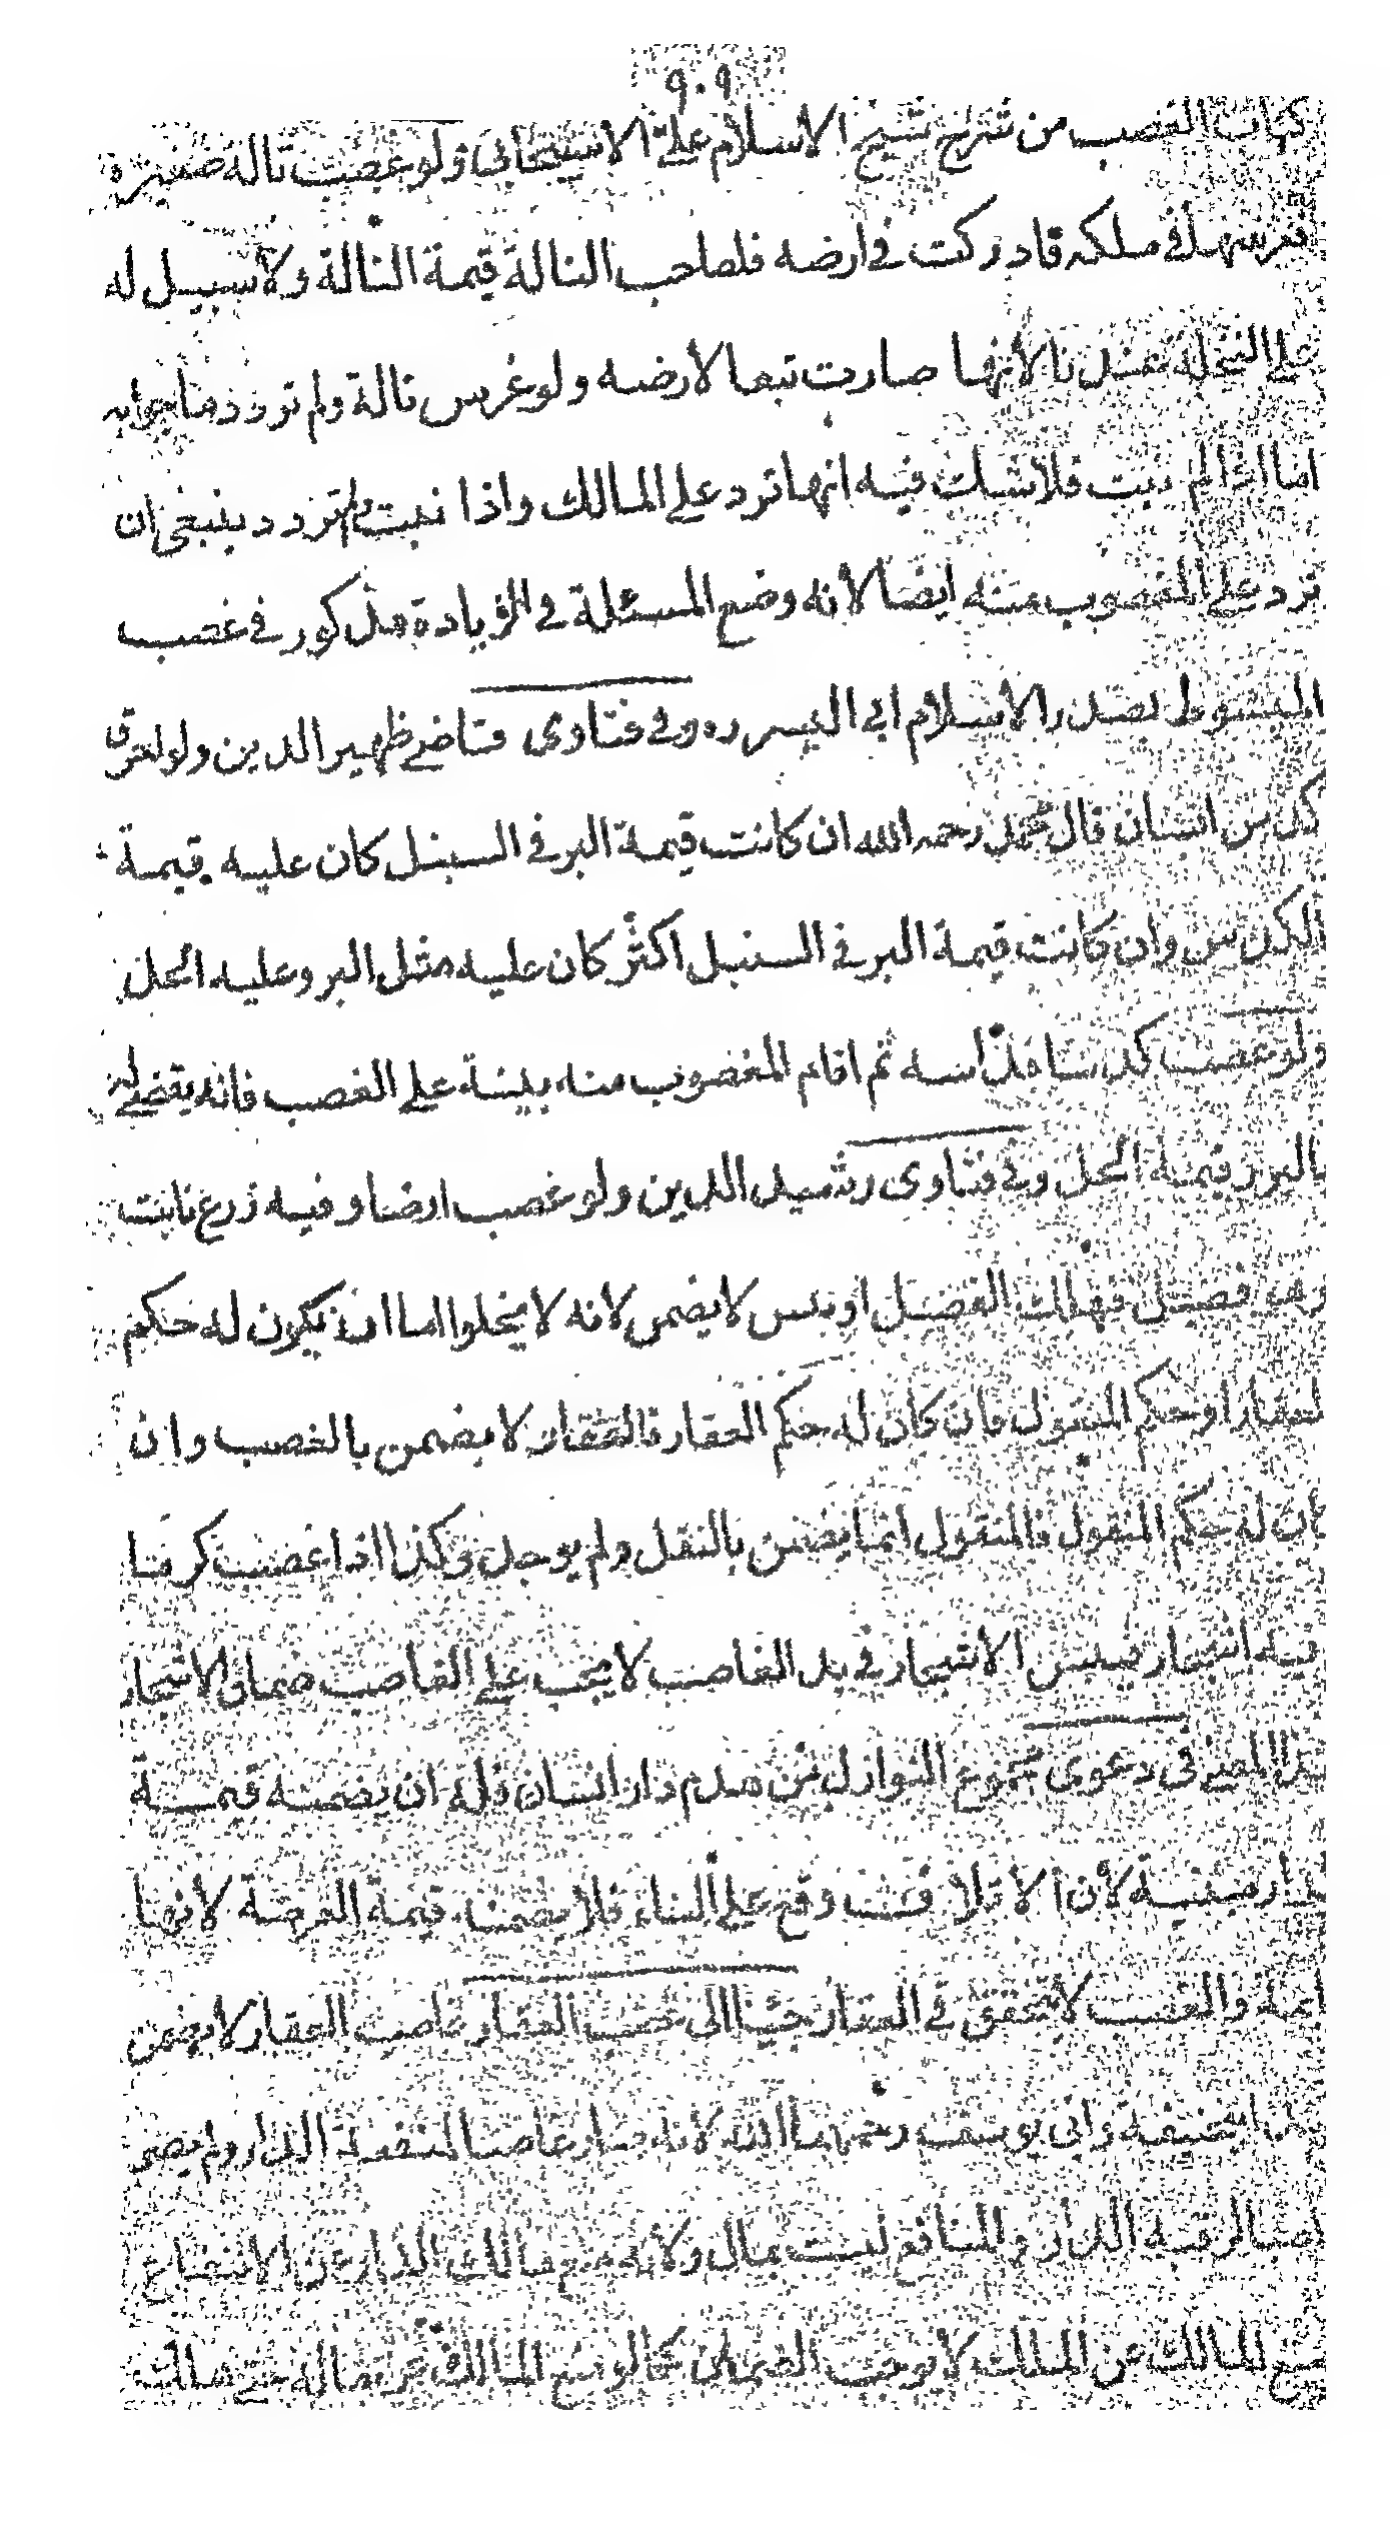 ٩٠٩
كتاب الغصب من شرح شيخ الاسلام على الاسبيجابى ولو غصب تالة صغيرة
فغرسها فى ملكه فادركت فى ارضه فلصاحب التالة قيمة التالة ولا سبيل له
على النخلة لانها صارت تبعا لارضه ولو غرس تالة ولم تزدد
اما اذا لم تنبت فلاشك فيه انها ترد على المالك واذا نبتت ولم تزدد ينبغى ان
ترد على المغصوب منه ايضا لانه وضع المسئلة فى الزيادة مذكور فى غصب
المبسوط لصدر الاسلام ابى اليسر ره وفى فتاوى قاضى ظهير الدين ولو احرق
كدس انسان قال محمد رحمه الله ان كانت قيمة البر فى السنبل كان عليه قيمة
الكدس وان كانت قيمة البر فى السنبل اكثر كان عليه مثل البر وعليه الجل
ولو غصب كدسا فداسه ثم اقام المغصوب منه بينة على الغصب فانه يقضى له
بالبر وقيمة الجل وفى فتاوى رشيد الدين ولو غصب ارضا وفيه زرع نابت
فهلك او يبس لا يضمن لانه لا يخلوا اما ان يكون له حكم
العقار او حكم المنقول فان كان له حكم العقار فالعقار لا يضمن بالغصب وان
كان له حكم المنقول فالمنقول انما يضمن بالنقل ولم يوجد وكذا اذا غصب كرما
فيه اشجار فيبس الاشجار فى يد الغاصب لا يجب على الغاصب ضمان الاشجار
فى دعوى مجموع النوازل من هدم دار انسان فله ان يضمنه قيمة
مبنية لان الاتلاف وقع على البناء فلا يضمن قيمة العرصة لانها
والغصب لا يتحقق فى العقار جئنا الى غصب العقار غاصب العقار لا يضمن
عند ابى حنيفة وابى يوسف رحمهما الله لانه صار غاصبا لمنفعة الدار ولم يصر
غاصبا لرقبة الدار والمنافع ليست بمال ولانه منع مالك الدار عن الانتفاع
منع المالك عن الملك لا يوجب الضمان كما لو منع المالك حتى هلك